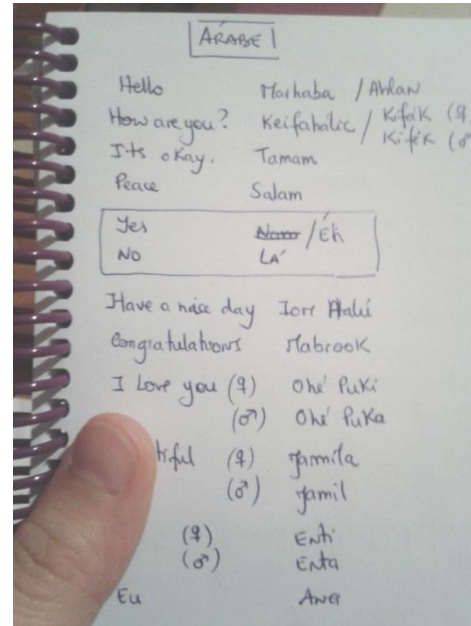 ARABE
Hello Marhaba / Ahlan
How are you? Keifahálic / Kifák (♀)
Kifék (♂
It's okay. Tamam
Peace Salam
Yes / Éh
NO LÁ
Have a nice day
Congratulations Mabrook
I Love you (♀) Ohé Puki
(♂) Ohé Puka
tiful (♀) Jamila
(♂) Jamil
(♀) Enti
(♂) Enta
Eu Ana